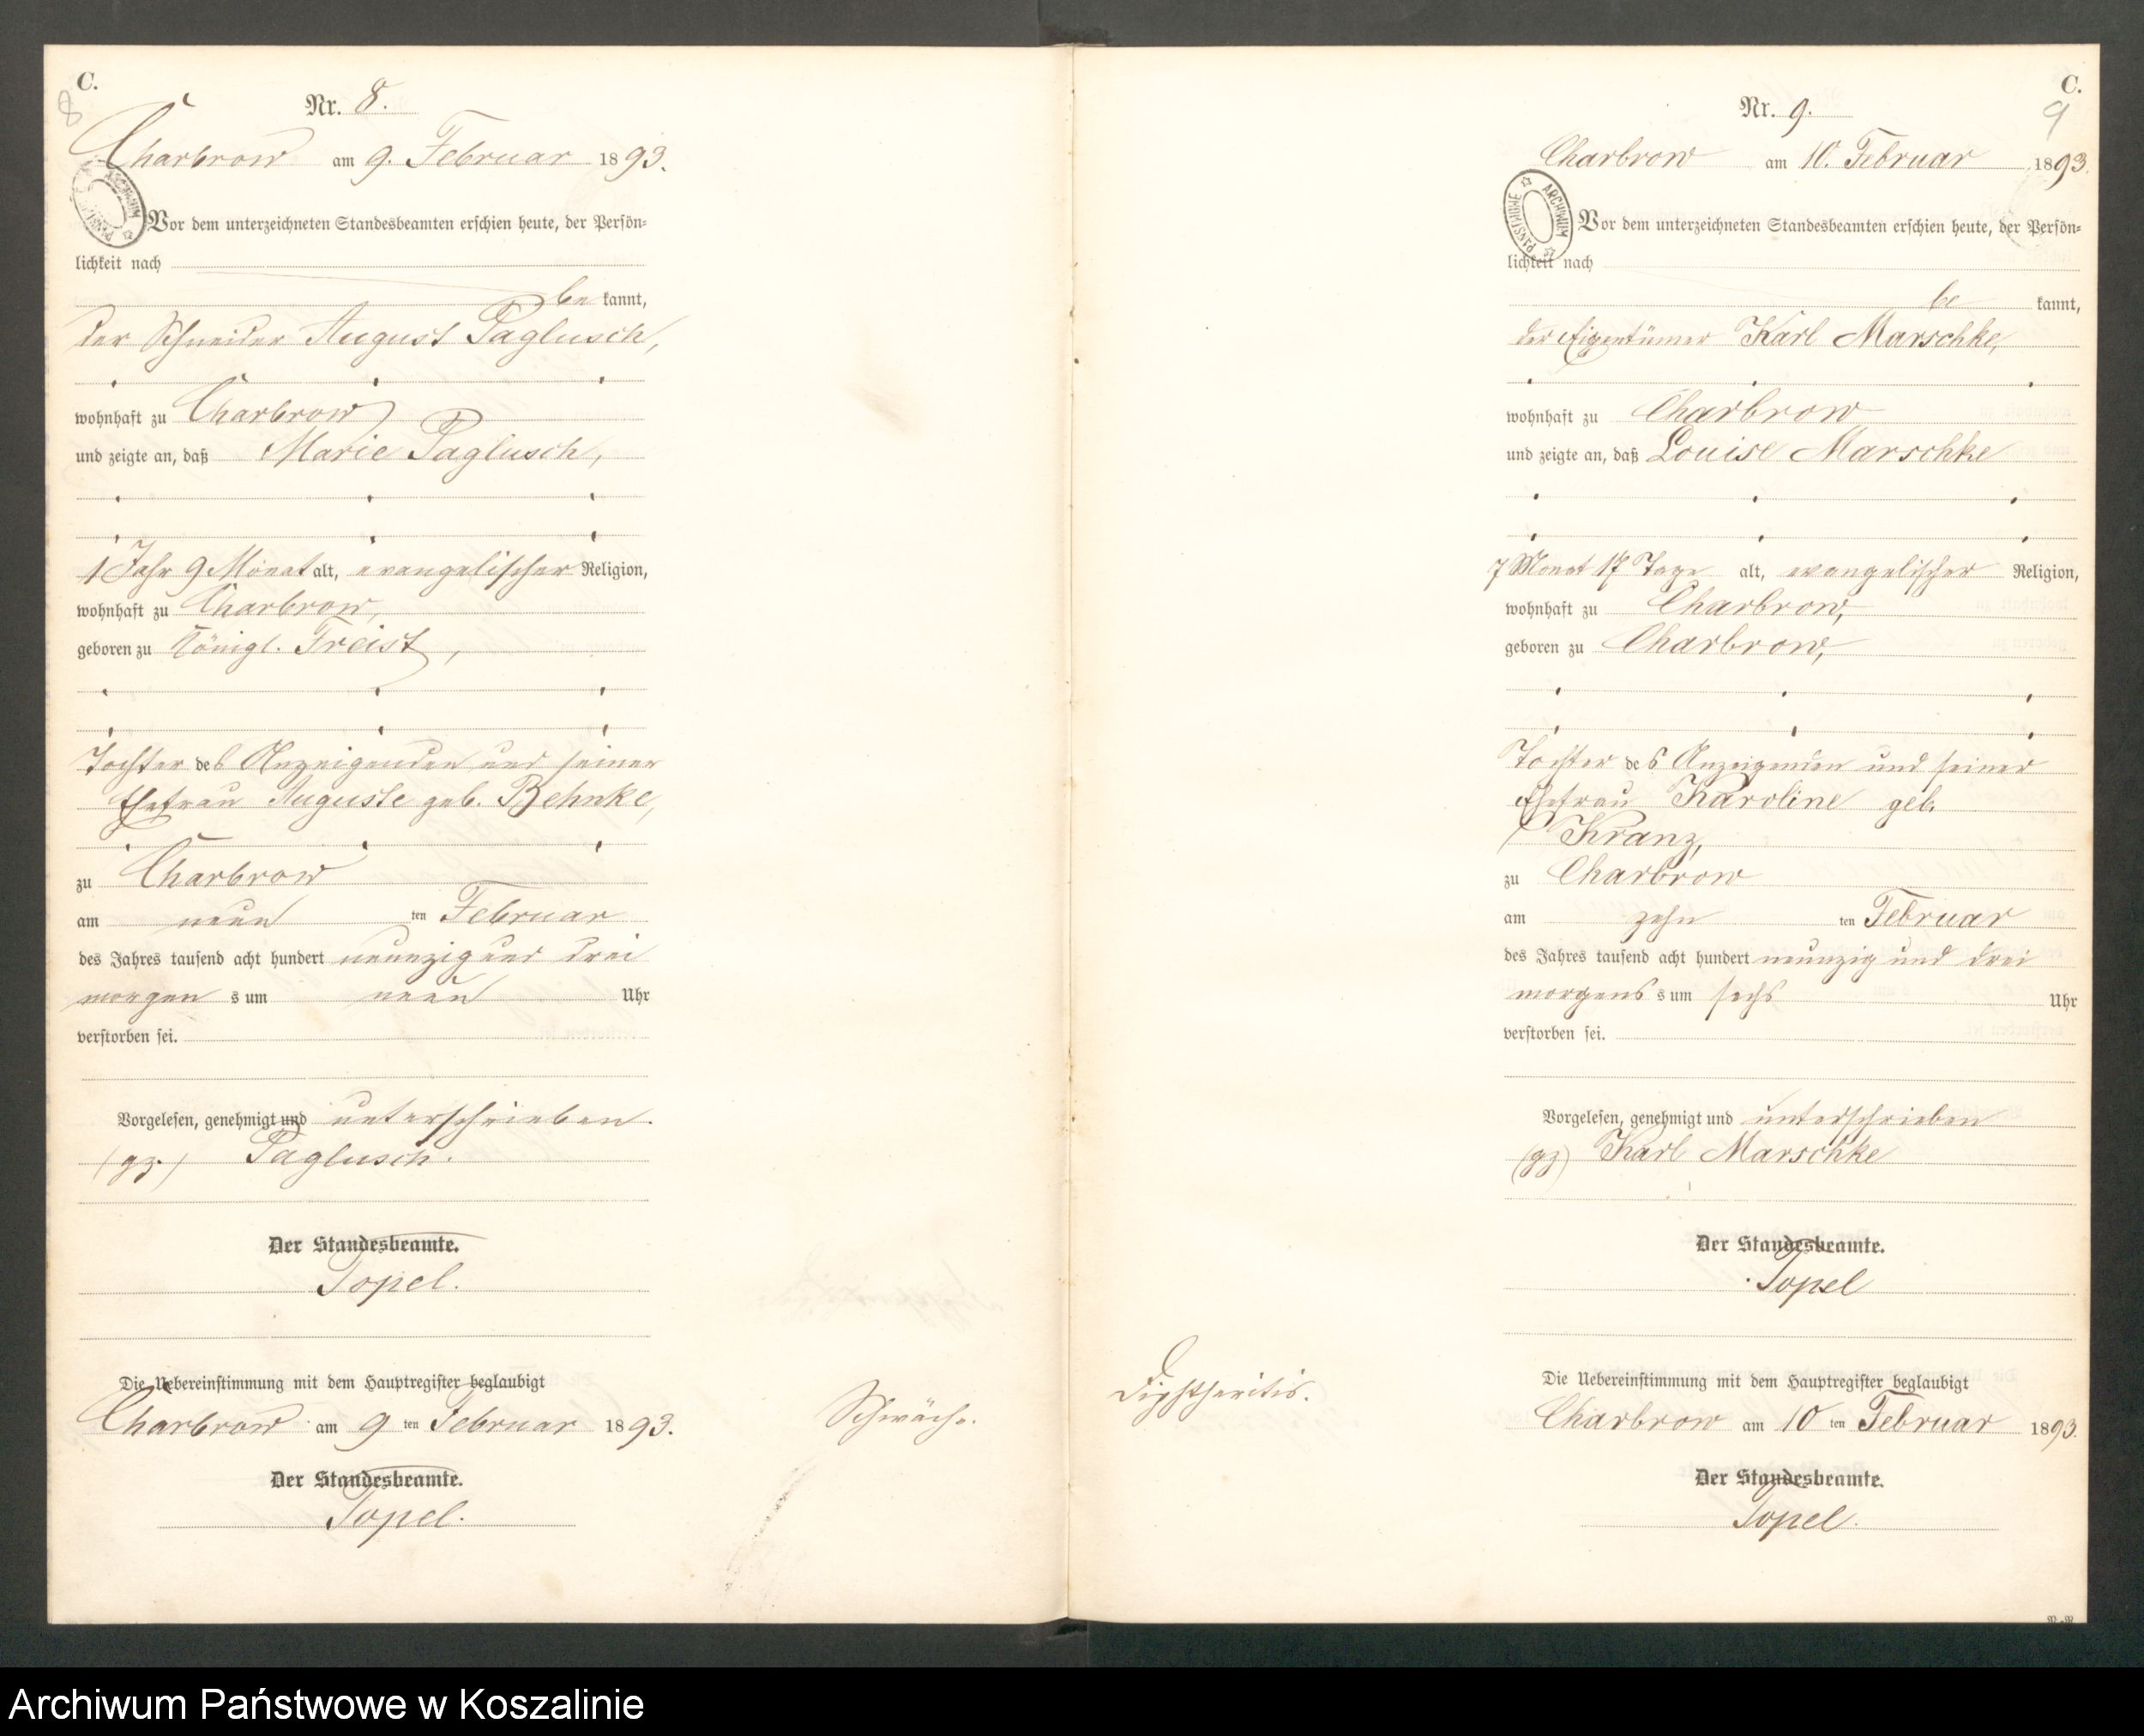 C.
8
Nr. 8.
Charbrow am 9. Februar 1893.
Vor dem unterzeichneten Standesbeamten erschien heute, der Persön-
lichkeit nach
be kannt,
der Schneider August Paglusch,
wohnhaft zu Charbrow
und zeigte an, daß Marie Paglusch,
1 Jahr 9 Monat alt, evangelischer Religion,
wohnhaft zu Charbrow,
geboren zu Königl. Freist,
Tochter des Anzeigenden und seiner
Ehefrau Auguste geb. Behnke,
zu Charbrow
am neun ten Februar
des Jahres tausend acht hundert neunzig und drei
morgen s um neun Uhr
verstorben sei.
Vorgelesen, genehmigt und unterschrieben.
(gz.) Paglusch.
Der Standesbeamte.
Topel.
Die Uebereinstimmung mit dem Hauptregister beglaubigt
Charbrow am 9 ten Februar 1893.
Der Standesbeamte.
Topel.
Schwäche.
C.
9
Nr. 9.
Charbrow am 10. Februar 1893.
ARCHIWUM PAŃSTWOWE
Vor dem unterzeichneten Standesbeamten erschien heute, der Persön-
lichkeit nach
be kannt,
der Eigentümer Karl Marschke,
wohnhaft zu Charbrow
und zeigte an, daß Louise Marschke
7 Monat 17 Tage alt, evangelischer Religion,
wohnhaft zu Charbrow,
geboren zu Charbrow,
Tochter des Anzeigenden und seiner
Ehefrau Karoline geb.
Kranz,
zu Charbrow
am zehn ten Februar
des Jahres tausend acht hundert neunzig und drei
morgens s um sechs Uhr
verstorben sei.
Vorgelesen, genehmigt und unterschrieben
(gz) Karl Marschke
Der Standesbeamte.
Topel
Die Uebereinstimmung mit dem Hauptregister beglaubigt
Charbrow am 10 ten Februar 1893.
Der Standesbeamte.
Topel.
Diphtheritis.
Archiwum Państwowe w Koszalinie